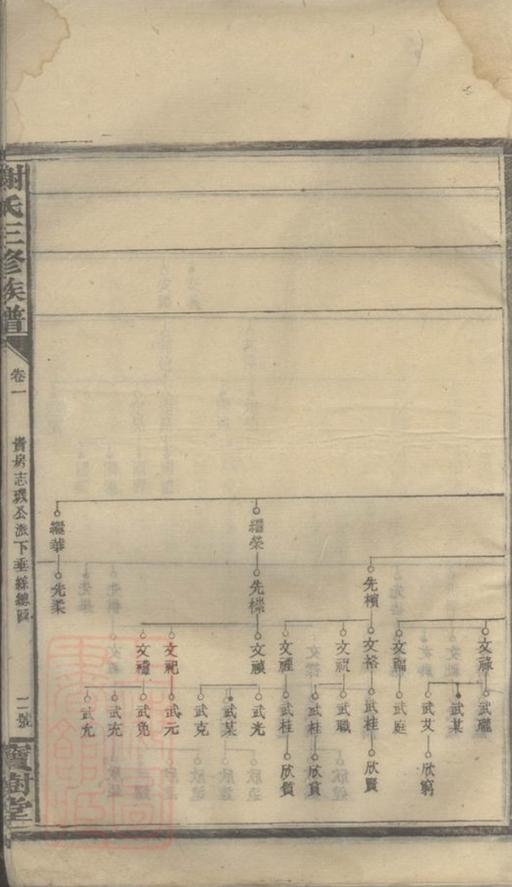 謝氏三修族譜
卷一
貴房志璞公派下垂絲總圖
二號
寶樹堂
繼榮
繼華
先檟
先櫟
先柔
文祿
文福
文裕
文祝
文禋
文禎
文祀
文禮
武瓏
武某
武艾
武庭
武桂
武職
武杜
武桂
武光
武某
武克
武元
武堯
武充
武允
欣窮
欣賢
欣貧
欣質